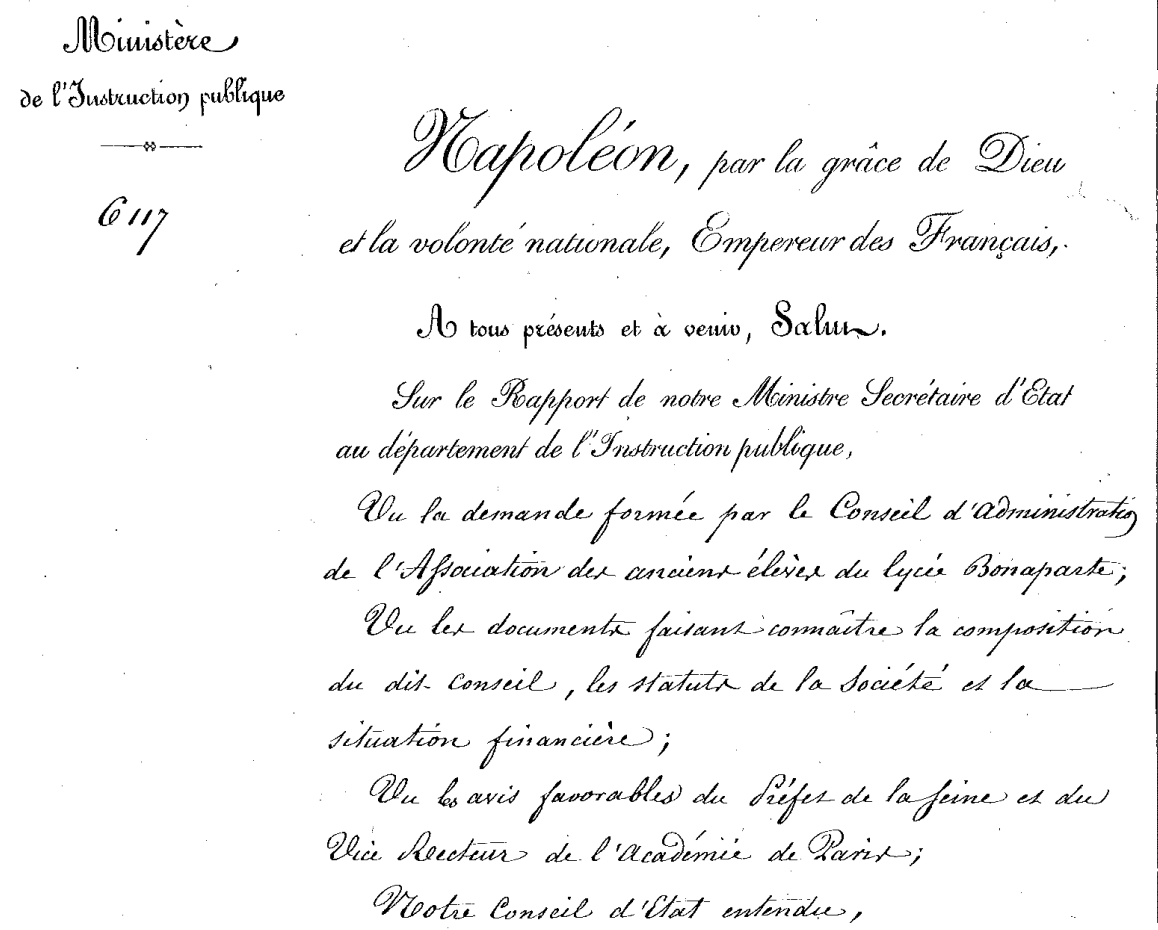 Ministère
de l'Instruction publique
6117
Napoléon, par la grâce de Dieu
et la volonté nationale, Empereur des Français,
A tous présents et à venir, Salut.
Sur le Rapport de notre Ministre Secrétaire d'Etat
au département de l'Instruction publique,
Vu la demande formée par le Conseil d'administration
de l'Association des anciens élèves du lycée Bonaparte;
Vu les documents faisant connaître la composition
du dit Conseil, les statuts de la Société et la
situation financière;
Vu les avis favorables du Préfet de la Seine et du
Vice Recteur de l'académie de Paris;
Notre Conseil d'Etat entendu,